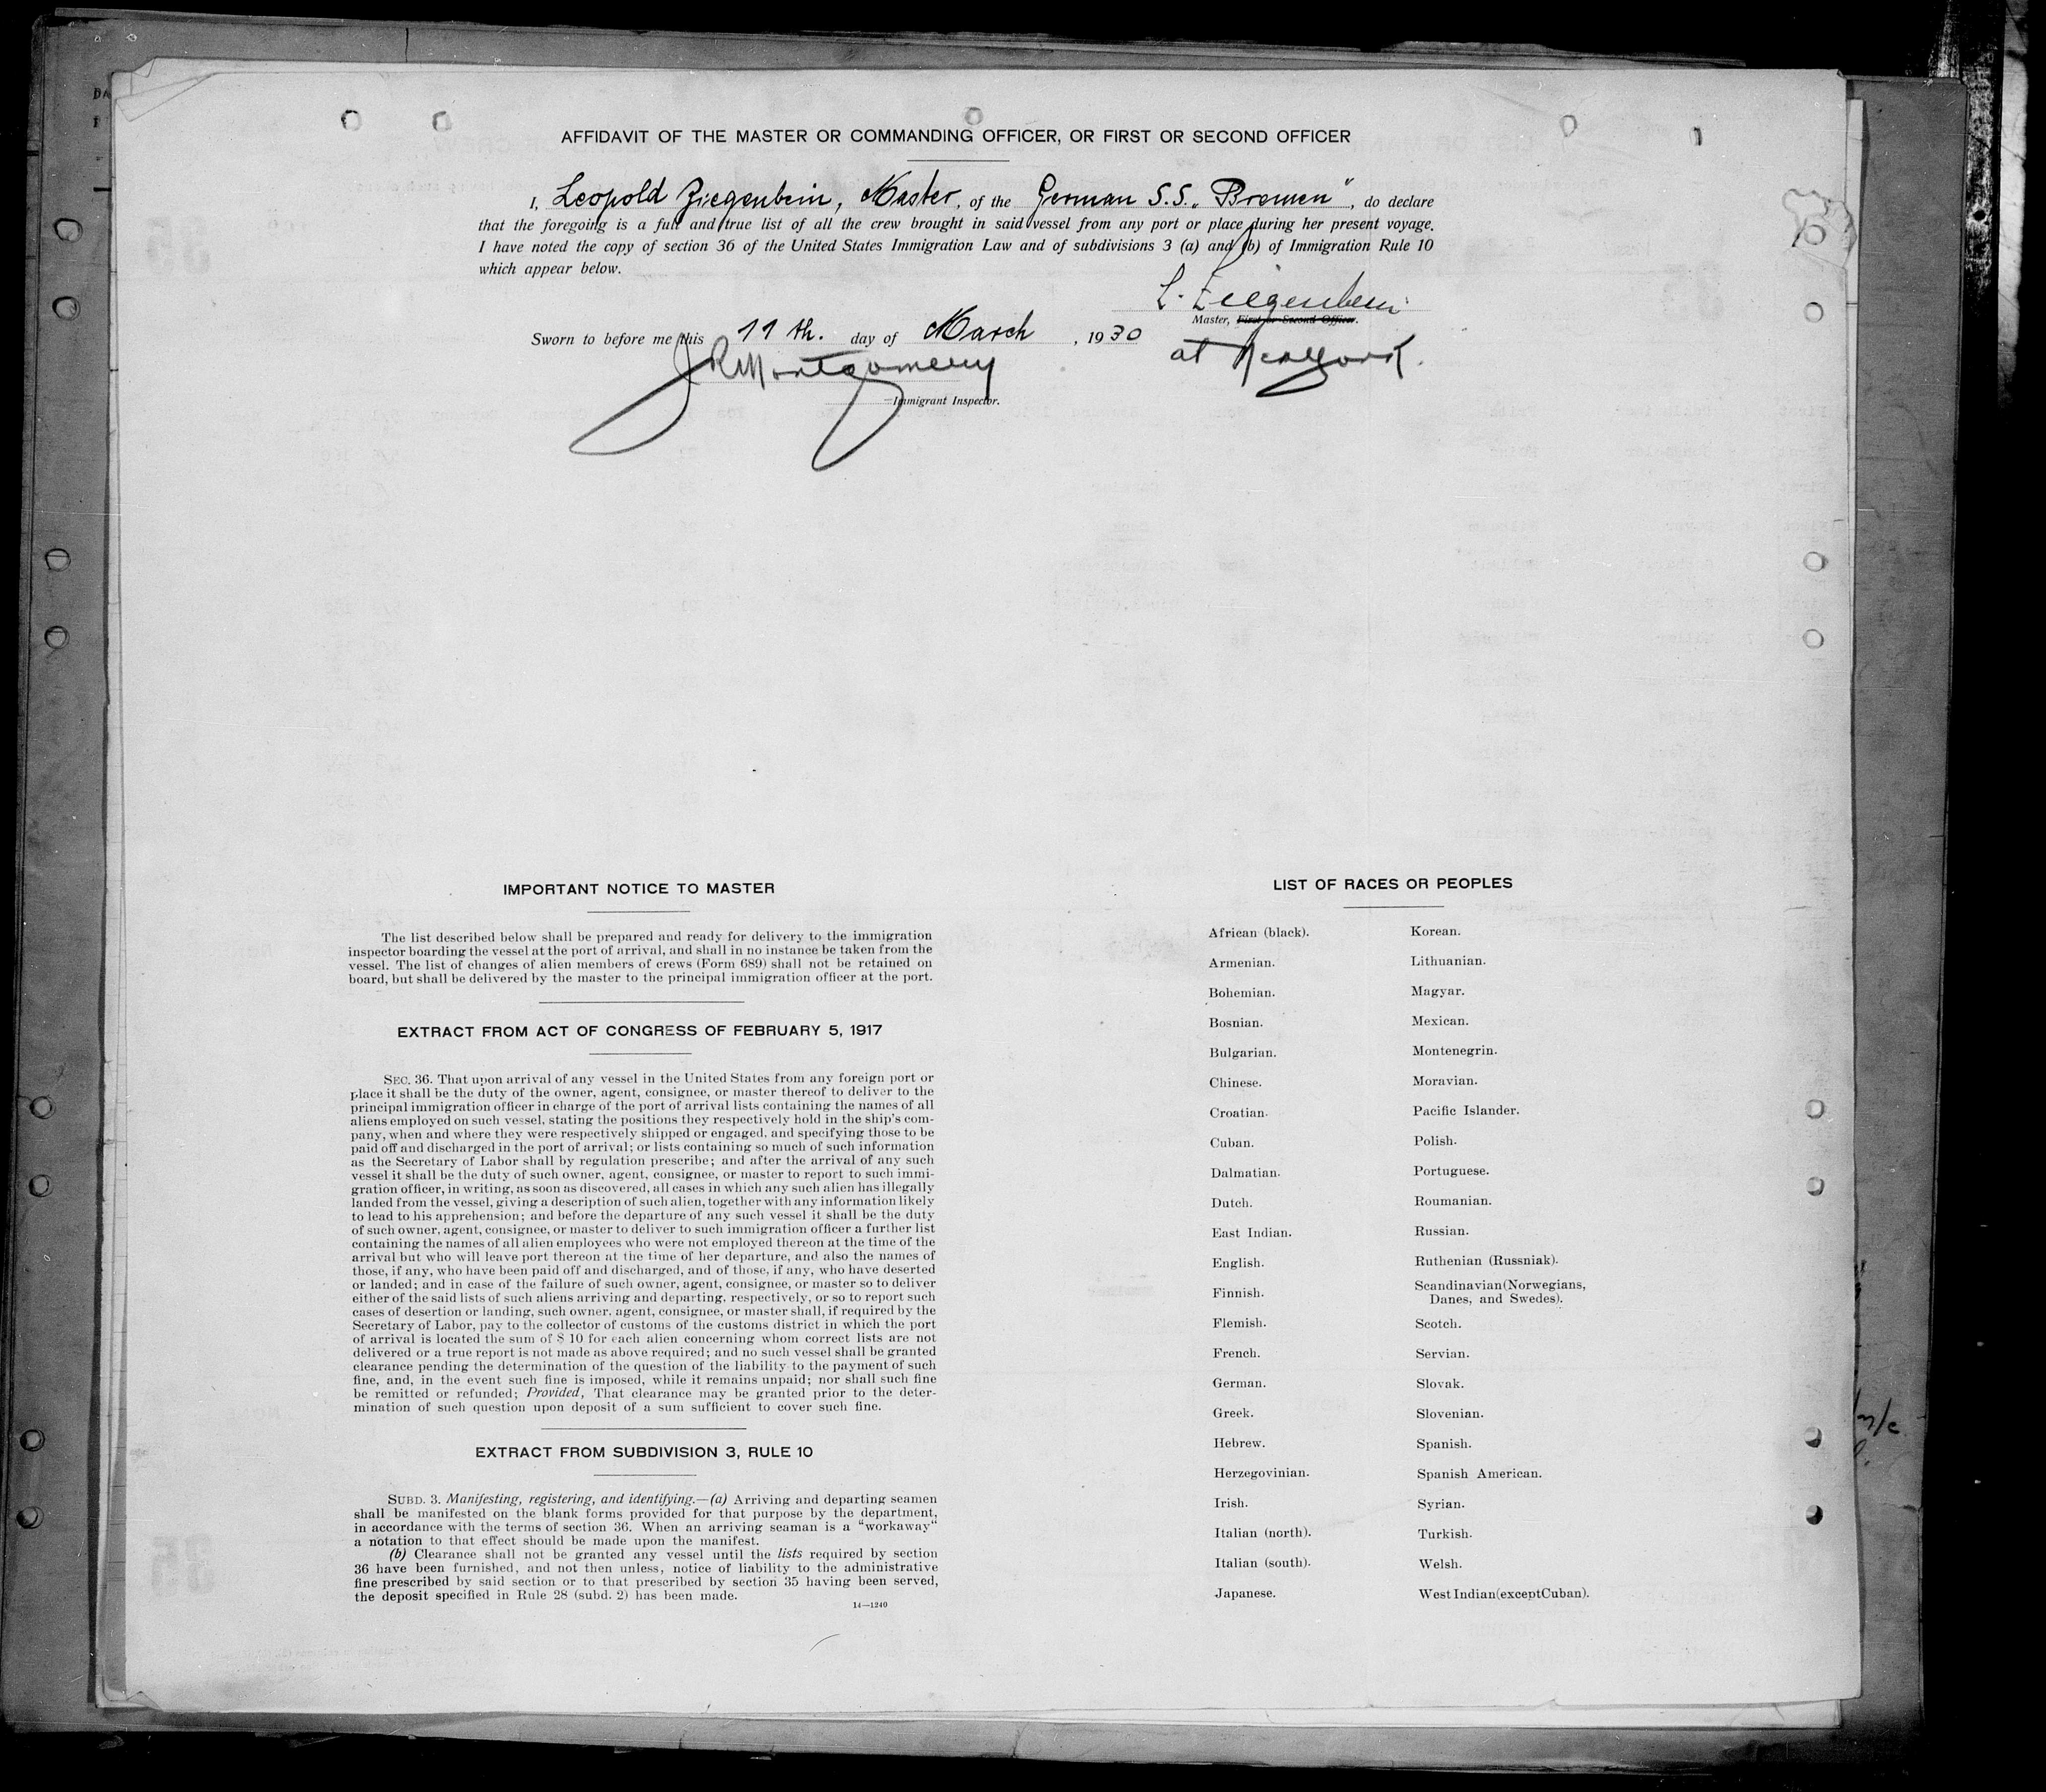 AFFIDAVIT OF THE MASTER OR COMMANDING OFFICER, OR FIRST OR SECOND OFFICER
I, Leopold Ziegenbein, Master, of the German S.S. „Bremen“, do declare
that the foregoing is a full and true list of all the crew brought in said vessel from any port or place during her present voyage.
I have noted the copy of section 36 of the United States Immigration Law and of subdivisions 3 (a) and (b) of Immigration Rule 10
which appear below.
L. Ziegenbein
Master, First or Second Officer.
Sworn to before me this 11th. day of March, 1930
at New York.
J R Montgomery
Immigrant Inspector.
IMPORTANT NOTICE TO MASTER
The list described below shall be prepared and ready for delivery to the immigration
inspector boarding the vessel at the port of arrival, and shall in no instance be taken from the
vessel. The list of changes of alien members of crews (Form 689) shall not be retained on
board, but shall be delivered by the master to the principal immigration officer at the port.
EXTRACT FROM ACT OF CONGRESS OF FEBRUARY 5, 1917
SEC. 36. That upon arrival of any vessel in the United States from any foreign port or
place it shall be the duty of the owner, agent, consignee, or master thereof to deliver to the
principal immigration officer in charge of the port of arrival lists containing the names of all
aliens employed on such vessel, stating the positions they respectively hold in the ship's com-
pany, when and where they were respectively shipped or engaged, and specifying those to be
paid off and discharged in the port of arrival; or lists containing so much of such information
as the Secretary of Labor shall by regulation prescribe; and after the arrival of any such
vessel it shall be the duty of such owner, agent, consignee, or master to report to such immi-
gration officer, in writing, as soon as discovered, all cases in which any such alien has illegally
landed from the vessel, giving a description of such alien, together with any information likely
to lead to his apprehension; and before the departure of any such vessel it shall be the duty
of such owner, agent, consignee, or master to deliver to such immigration officer a further list
containing the names of all alien employees who were not employed thereon at the time of the
arrival but who will leave port thereon at the time of her departure, and also the names of
those, if any, who have been paid off and discharged, and of those, if any, who have deserted
or landed; and in case of the failure of such owner, agent, consignee, or master so to deliver
either of the said lists of such aliens arriving and departing, respectively, or so to report such
cases of desertion or landing, such owner, agent, consignee, or master shall, if required by the
Secretary of Labor, pay to the collector of customs of the customs district in which the port
of arrival is located the sum of $ 10 for each alien concerning whom correct lists are not
delivered or a true report is not made as above required; and no such vessel shall be granted
clearance pending the determination of the question of the liability to the payment of such
fine, and, in the event such fine is imposed, while it remains unpaid; nor shall such fine
be remitted or refunded; Provided, That clearance may be granted prior to the deter-
mination of such question upon deposit of a sum sufficient to cover such fine.
EXTRACT FROM SUBDIVISION 3, RULE 10
SUBD. 3. Manifesting, registering, and identifying.—(a) Arriving and departing seamen
shall be manifested on the blank forms provided for that purpose by the department,
in accordance with the terms of section 36. When an arriving seaman is a “workaway“
a notation to that effect should be made upon the manifest.
(b) Clearance shall not be granted any vessel until the lists required by section
36 have been furnished, and not then unless, notice of liability to the administrative
fine prescribed by said section or to that prescribed by section 35 having been served,
the deposit specified in Rule 28 (subd. 2) has been made.
14—1240
LIST OF RACES OR PEOPLES
African (black).
Armenian.
Bohemian.
Bosnian.
Bulgarian.
Chinese.
Croatian.
Cuban.
Dalmatian.
Dutch.
East Indian.
English.
Finnish.
Flemish.
French.
German.
Greek.
Hebrew.
Herzegovinian.
Irish.
Italian (north).
Italian (south).
Japanese.
Korean.
Lithuanian.
Magyar.
Mexican.
Montenegrin.
Moravian.
Pacific Islander.
Polish.
Portuguese.
Roumanian.
Russian.
Ruthenian (Russniak).
Scandinavian (Norwegians,
Danes, and Swedes).
Scotch.
Servian.
Slovak.
Slovenian.
Spanish.
Spanish American.
Syrian.
Turkish.
Welsh.
West Indian (except Cuban).